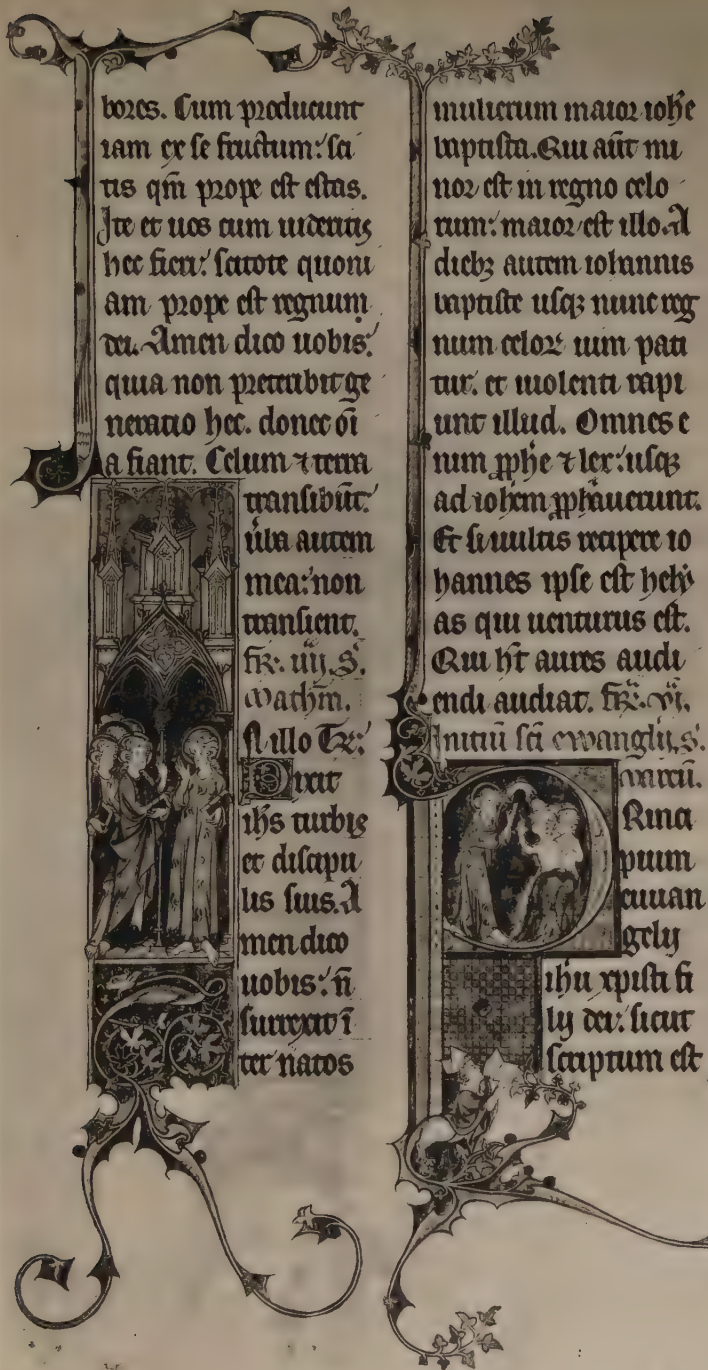 bores. Cum producunt
iam ex se fructum: sci
tis qm̄ prope est estas.
Ite et uos cum uideritis
hec fieri: scitote quoni
am prope est regnum
dei. Amen dico uobis:
quia non preteribit ge
neratio hec. donec oī
a fiant. Celum ⁊ terra
transibūt:
ūba autem
mea: non
transient.
fr̄. iiij. S.
Mathm̄.
In illo Tr̄:
Dixit
ihs turbis
et discipu
lis suis. A
men dico
uobis: n̄
surrexit ī
ter natos
mulierum maior ioh̄e
baptista. Qui aūt mi
nor est in regno celo
rum: maior est illo. A
dieb; autem iohannis
baptiste usq; nunc reg
num celoꝝ uim pati
tur. et uiolenti rapi
unt illud. Omnes e
nim ꝓph̄e ⁊ lex: usq;
ad ioh̄em ꝓph̄auerunt.
Et si uultis recipere io
hannes ipse est hely
as qui uenturus est.
Qui h̄t aures audi
endi audiat. fr̄. vi.
Initiū sc̄i ewanglij. S.
marcū.
PRinci
pium
euuan
gelij
ihu xpisti fi
lij dei: sicut
scriptum est